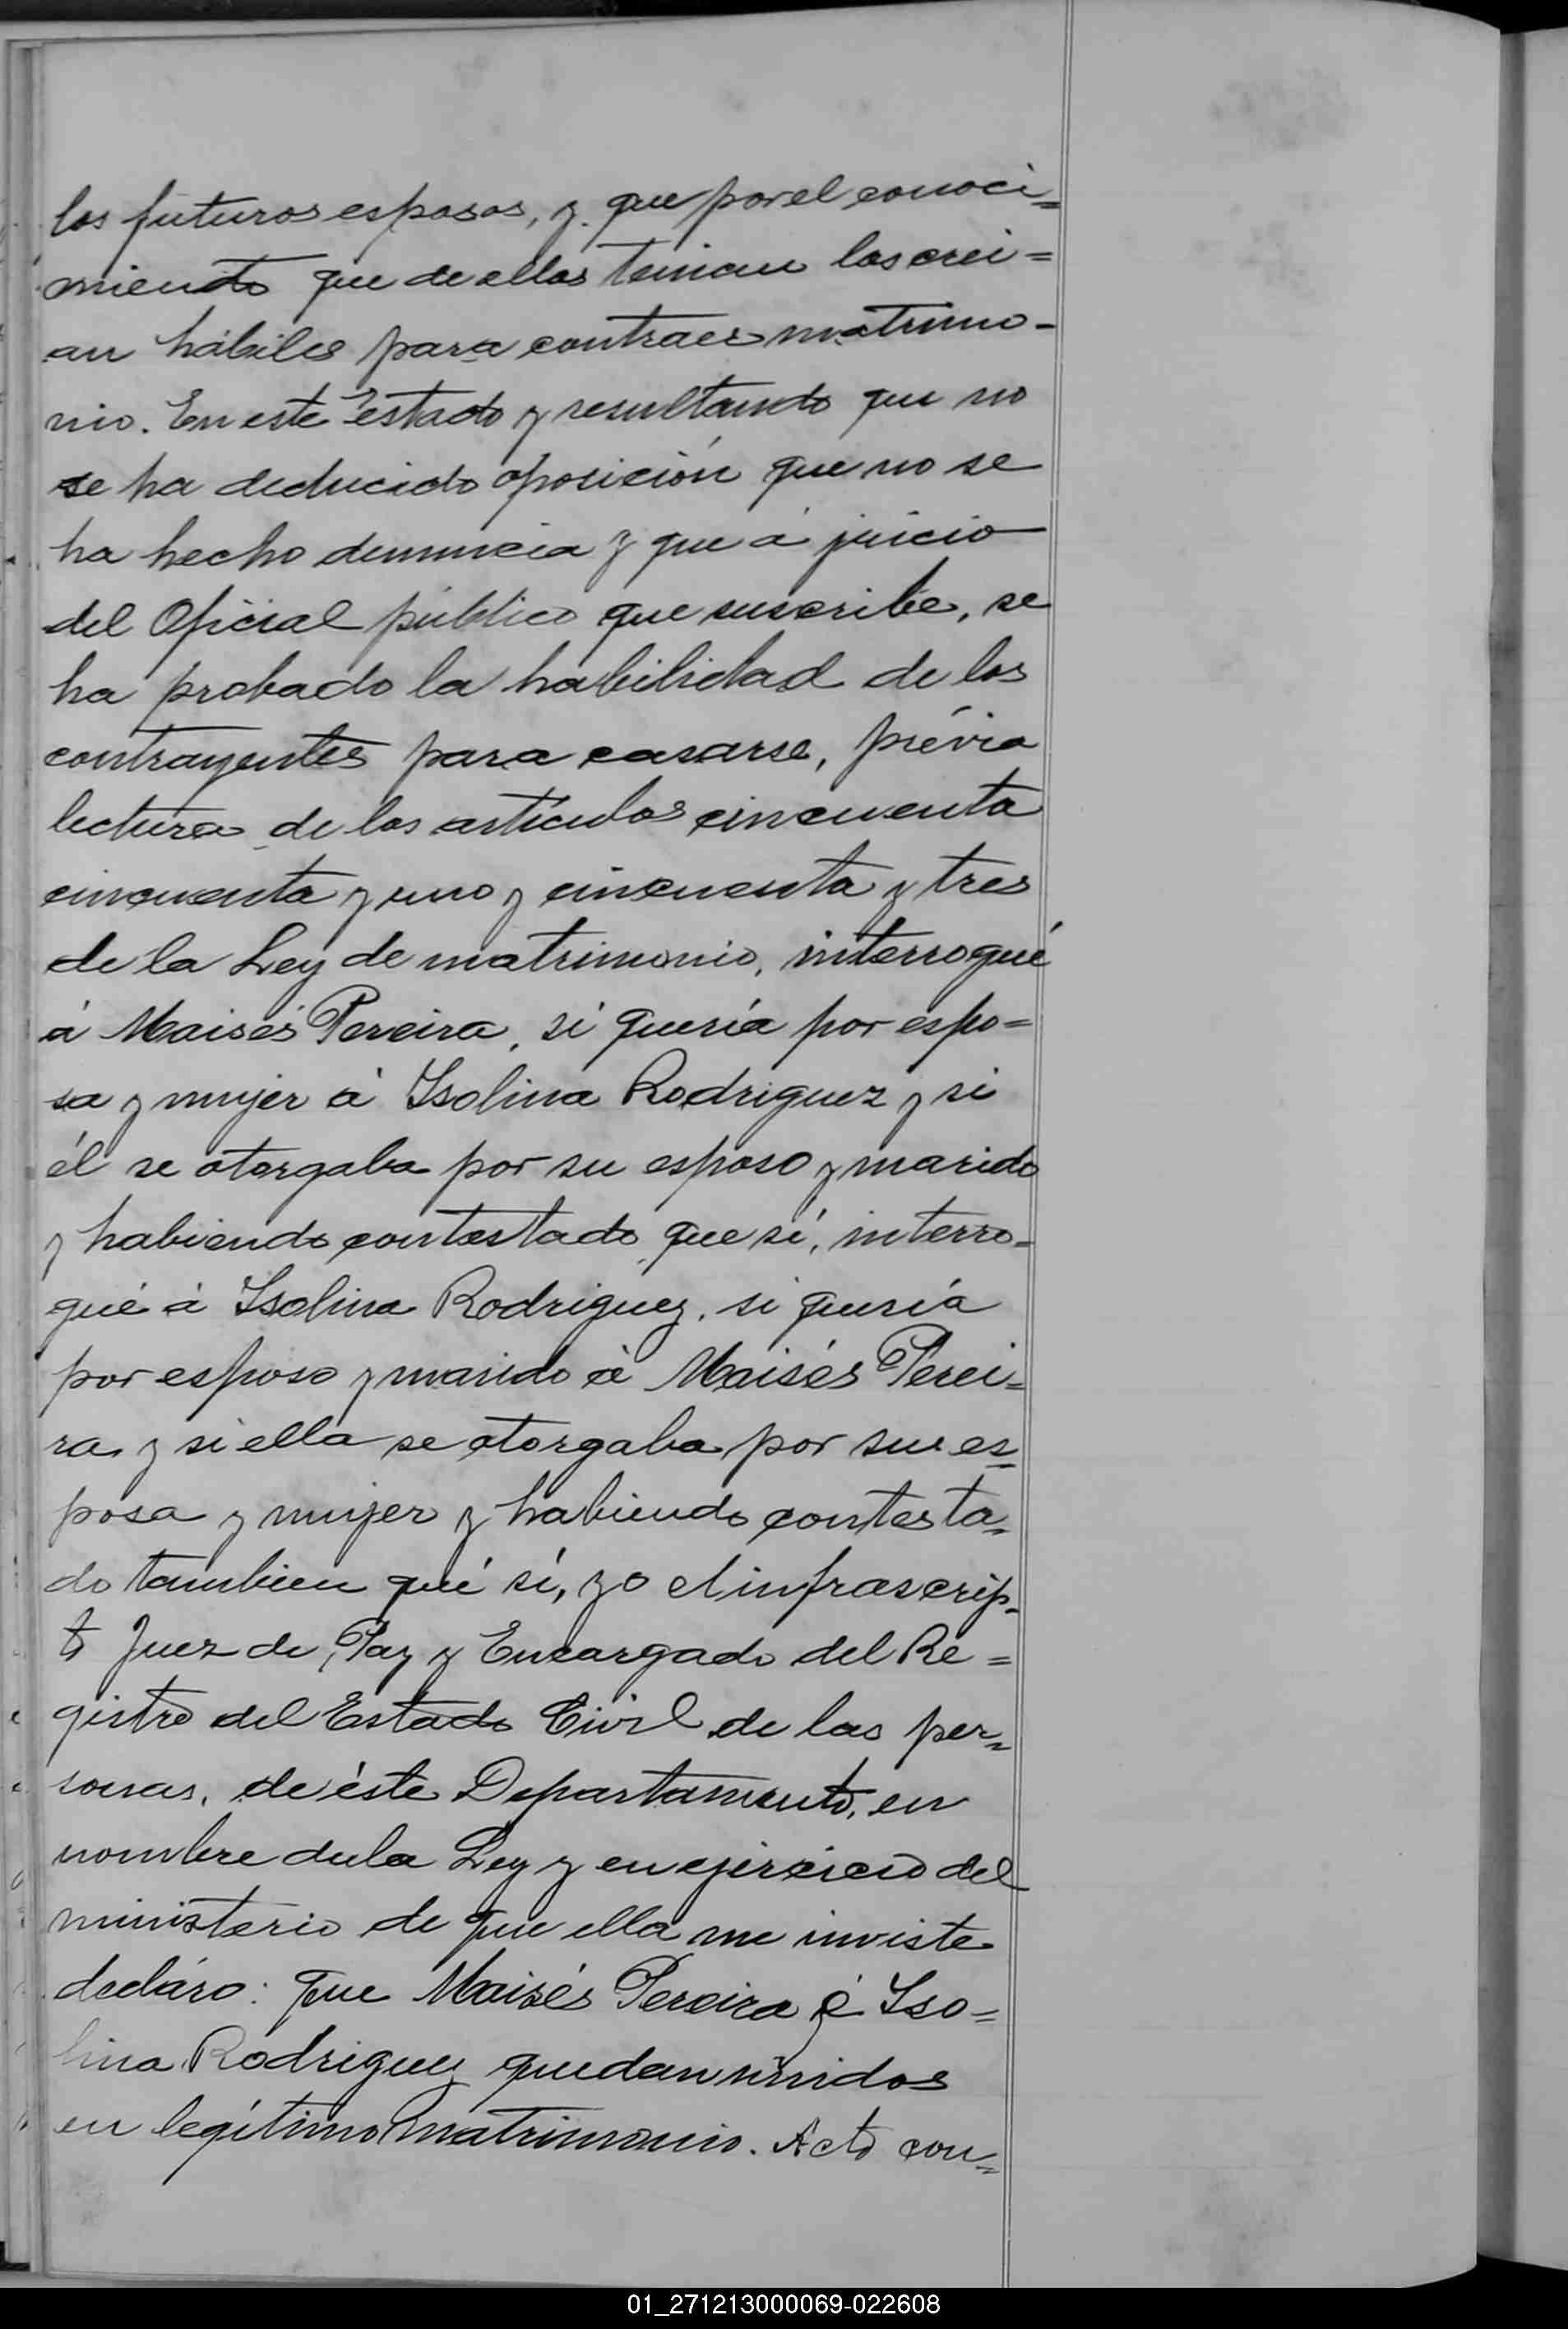 los futuros esposos, y que por el conoci=
miento que de ellos tenian los crei=
an hábiles para contraer matrimo-
nio. En este Estado y resultando que no
se ha deducido oposición que no se
ha hecho denuncia y que á juicio
del Oficial público que suscribe, se
ha probado la habilidad de los
contrayentes para casarse, prévia
lectura de los artículos cincuenta
cincuenta y uno y cincuenta y tres
de la Ley de matrimonio, interrogué
á Moisés Pereira, si quería por espo=
sa y mujer á Isolina Rodriguez y si
él se otorgaba por su esposo y marido
y habiendo contestado que sí, interro=
gué á Isolina Rodriguez, si quería
por esposo y marido á Moisés Perei=
ra y si ella se otorgaba por su es=
posa y mujer y habiendo contesta=
do tambien qué sí, yo el infrascrip=
to Juez de Paz y Encargado del Re=
gistro del Estado Civil de las per=
sonas, de éste Departamento, en
nombre de la Ley y en ejercicio del
ministerio de que ella me inviste
decláro: que Moisés Pereira é Iso=
lina Rodriguez quedan unidos
en legítimo matrimonio. Acto con=
01_271213000069-022608